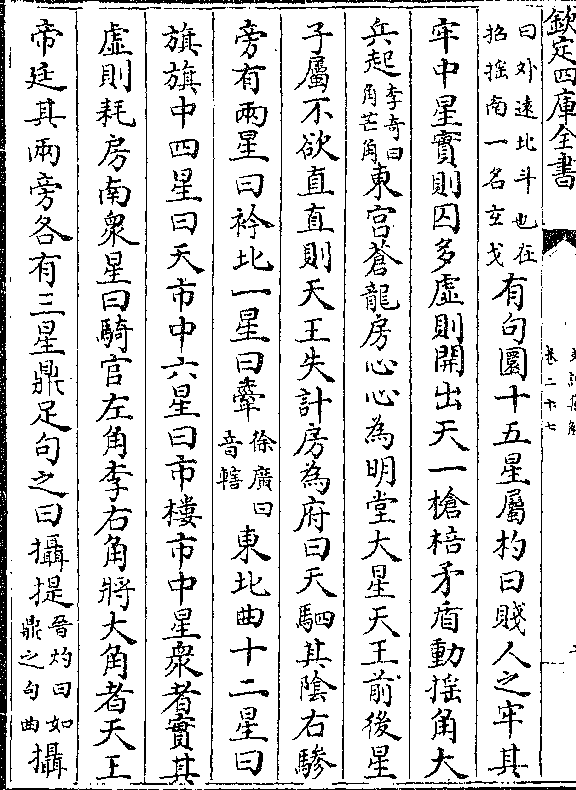 欽定四庫全書
卷二十七
曰外遠北斗也在
招搖南一名玄戈
有句圜十五星屬杓曰賤人之牢其
牢中星實則囚多虛則開出天一槍棓矛盾動搖角大
兵起
李奇曰
角芒角
東宮蒼龍房心心為明堂大星天王前後星
子屬不欲直直則天王失計房為府曰天駟其陰右驂
旁有兩星曰衿北一星曰舝
徐廣曰
音轄
東北曲十二星曰
旗旗中四星曰天市中六星曰市樓市中星衆者實其
虛則耗房南衆星曰騎官左角李右角將大角者天王
帝廷其兩旁各有三星鼎足句之曰攝提
晉灼曰如
鼎之句曲
攝